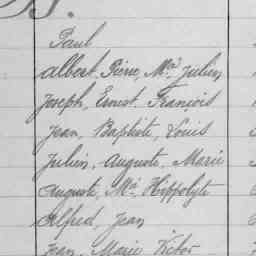 Paul
Albert, Pierre, Mie Julien
Joseph, Ernest, François
Jean, Baptiste, Louis
Julien, Auguste, Marie
Auguste, Mie Hippolyte
Alfred, Jean
Jean, Marie Victor